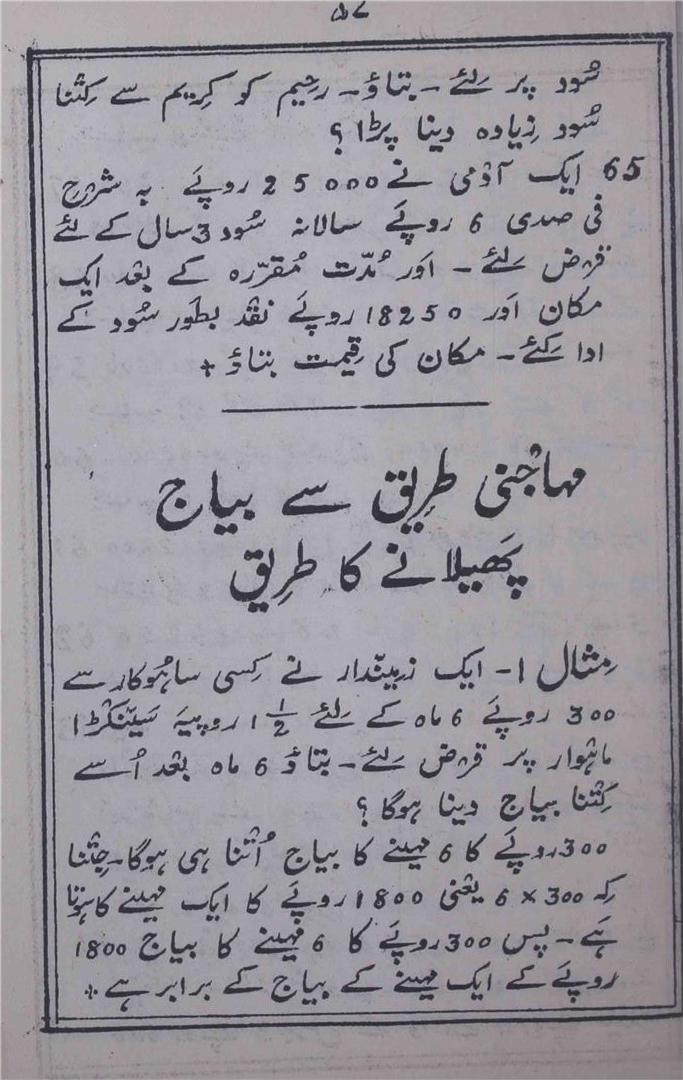 ۵۷
سُود پر لئے ۔ بتاؤ ۔ رحیم کو کریم سے کتنا
سُود زیادہ دینا پڑا ؟
65 ایک آدمی نے 25000 روپے بہ شرح
فی صدی 6 روپے سالانہ سُود 3 سال کے لئے
قرض لئے ۔ اور مُدّت مُقرّرہ کے بعد ایک
مکان اور 18250 روپے نقد بطور سُود کے
ادا کئے ۔ مکان کی قیمت بتاؤ +
مہاجنی طریق سے بیاج
پھیلانے کا طریق
مثال 1۔ ایک زمیندار نے کسی ساہُوکار سے
300 روپے 6 ماہ کے لئے 1½ روپیہ سینکڑا
ماہوار پر قرض لئے ۔ بتاؤ 6 ماہ بعد اُسے
کتنا بیاج دینا ہوگا ؟
300 روپے کا 6 مہینے کا بیاج اُتنا ہی ہوگا ۔ جتنا
کہ 300 × 6 یعنی 1800 روپے کا ایک مہینے کا ہوتا
ہے ۔ پس 300 روپے کا 6 مہینے کا بیاج 1800
روپے کے ایک مہینے کے بیاج کے برابر ہے +